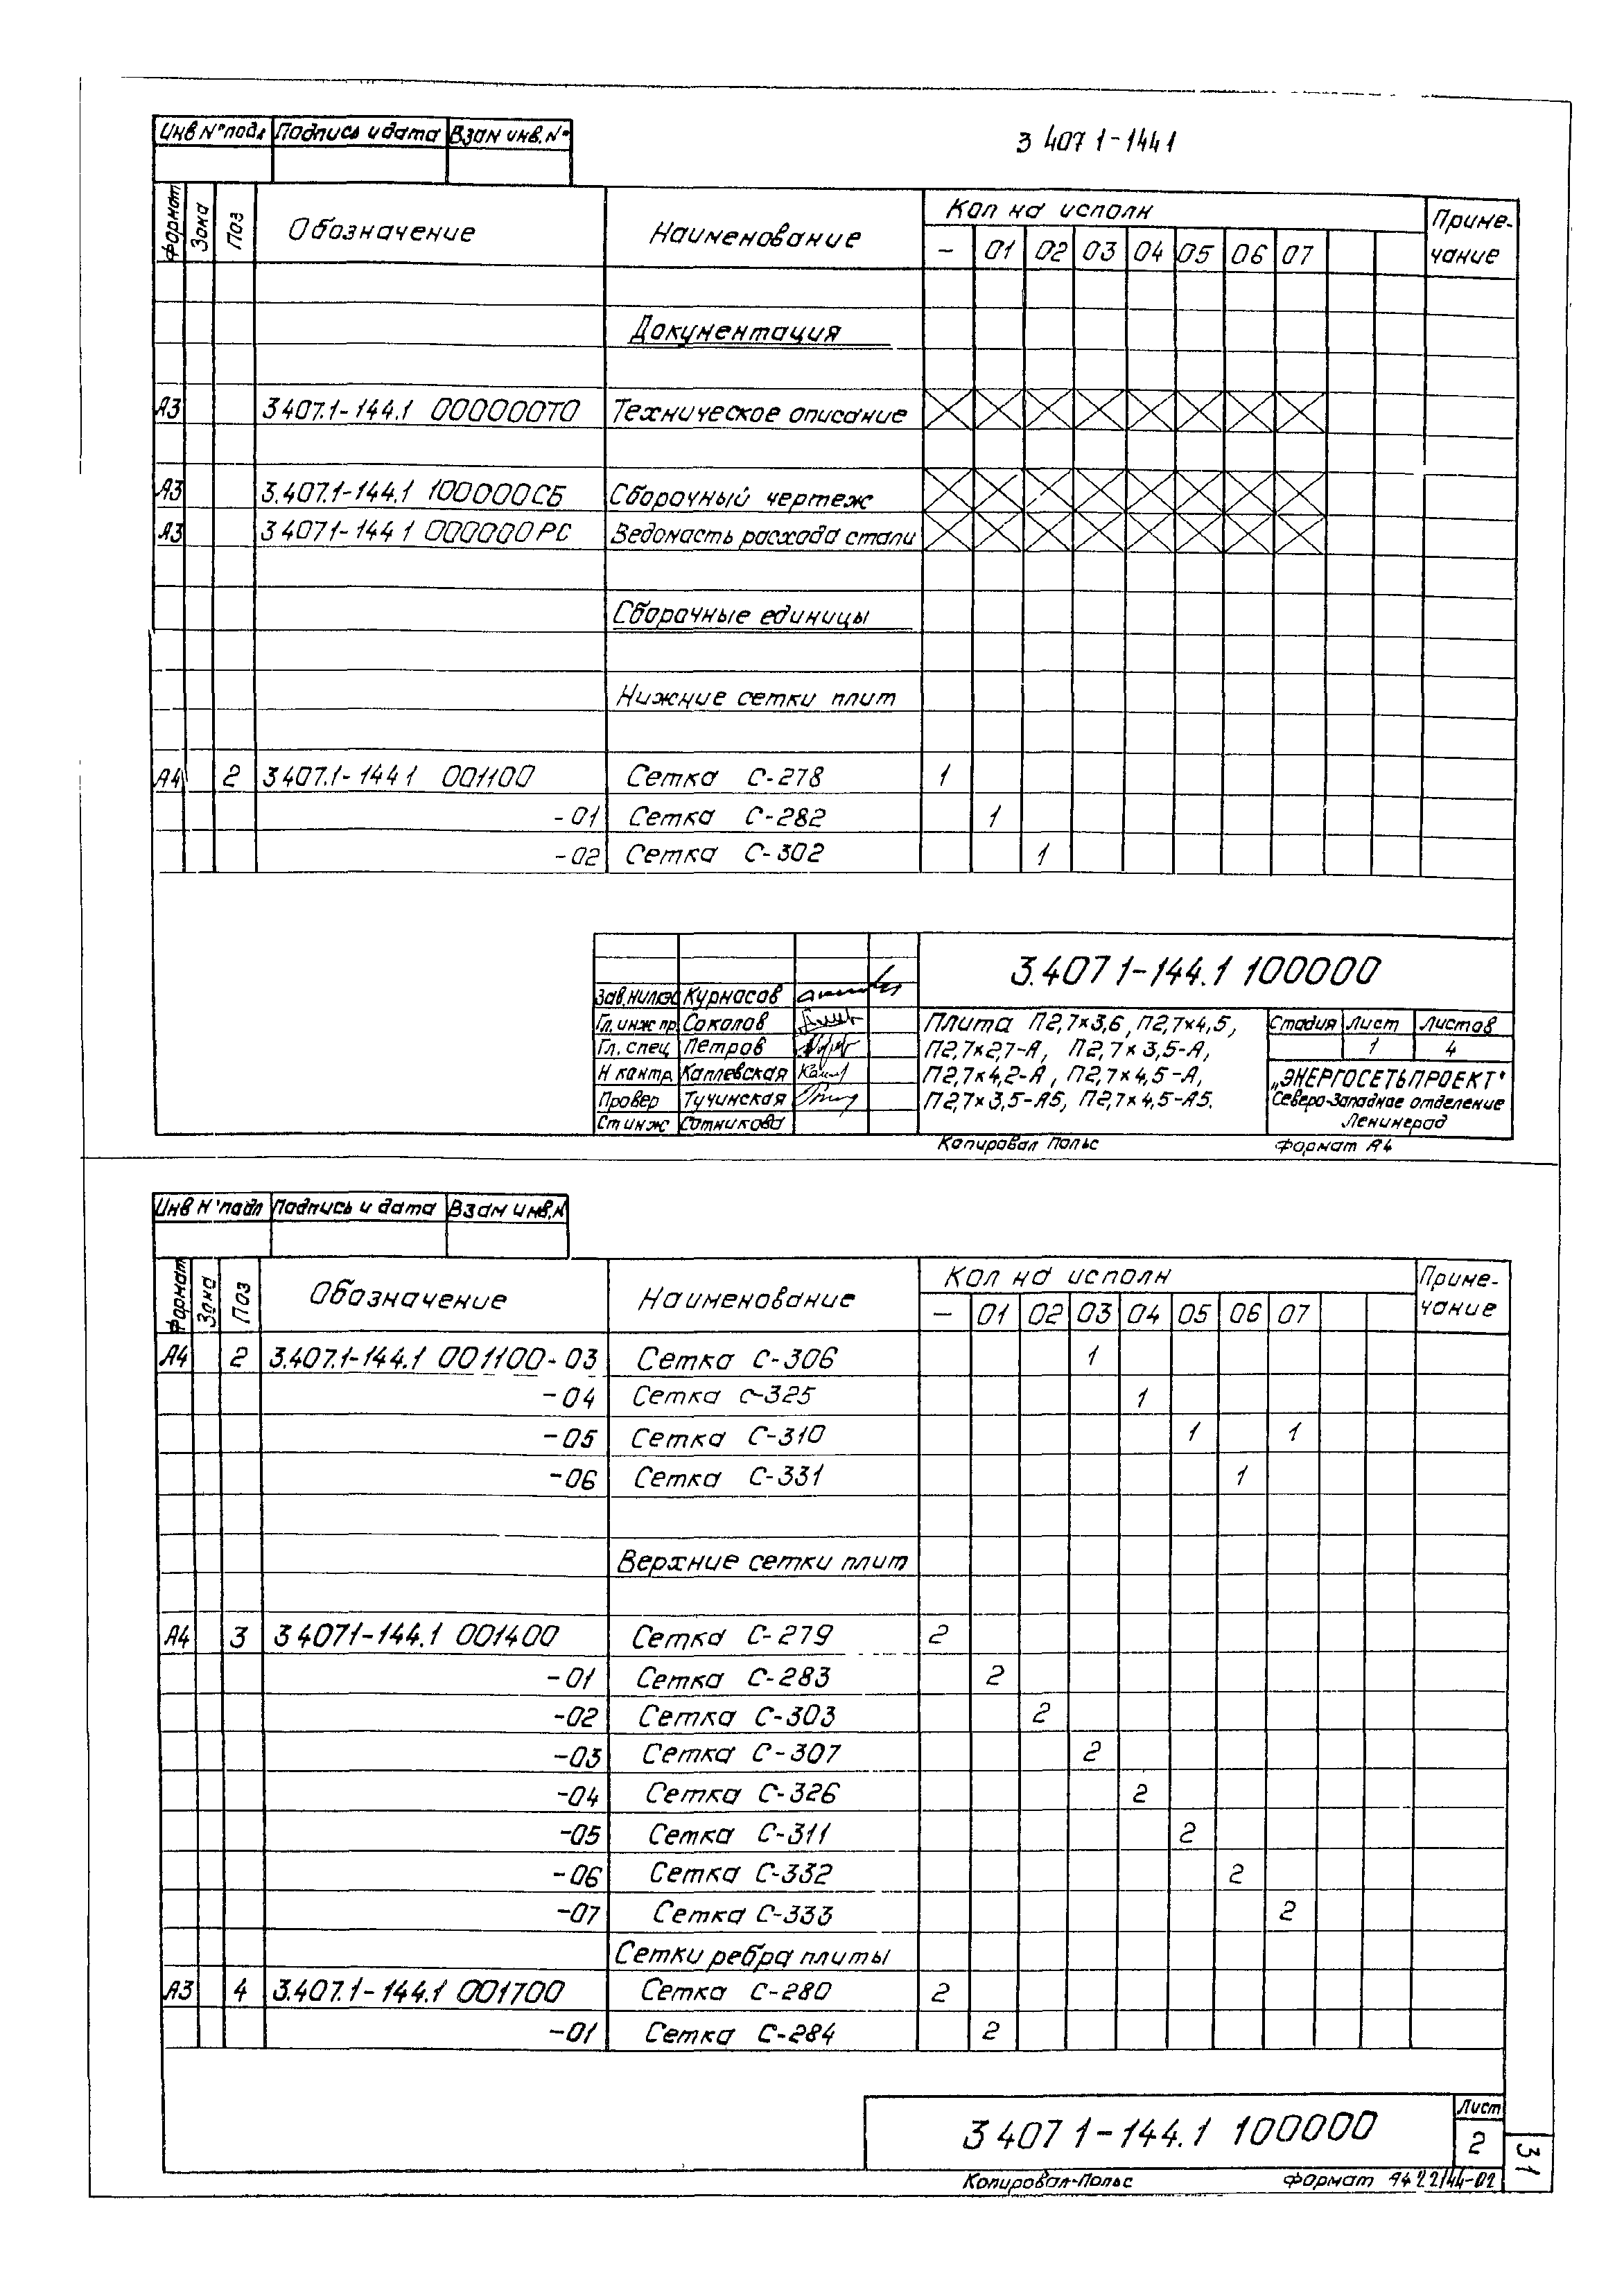 Инв №подл Подпись и дата Взам инв.№
3 407 1-144 1
Формат Зона Поз Обозначение Наименование Кол на исполн Приме-
чание
- 01 02 03 04 05 06 07
Документация
А3 3 407.1-144.1 000000ТО Техническое описание
А3 3.407.1-144.1 100000СБ Сборочный чертеж
А3 3 4071-144 1 000000РС Ведомасть расхода стали
Сборочные единицы
Нижние сетки плит
А4 2 3 407.1-144 1 001100 Сетка С-278 1
-01 Сетка С-282 1
-02 Сетка С-302 1
3.407 1-144.1 100000
Зав.нилкэс Курнасов
Гл.инж пр. Соколов
Гл. спец Петров
Н контр Каплевская
Провер Тучинская
Ст инж Сотникова
Плита П2,7×3,6, П2,7×4,5,
П2,7×2,7-А, П2,7×3,5-А,
П2,7×4,2-А, П2,7×4,5-А,
П2,7×3,5-А5, П2,7×4,5-А5.
Стадия Лист Листов
1 4
„ЭНЕРГОСЕТЬПРОЕКТ"
Северо-Западное отделение
Ленинград
Копировал Польс Формат А4
Инв №подл Подпись и дата Взам инв.№
Формат Зона Поз Обозначение Наименование Кол на исполн Приме-
чание
- 01 02 03 04 05 06 07
А4 2 3.407.1-144.1 001100-03 Сетка С-306 1
-04 Сетка С-325 1
-05 Сетка С-310 1 1
-06 Сетка С-331 1
Верхние сетки плит
А4 3 3 4071-144.1 001400 Сетка С-279 2
-01 Сетка С-283 2
-02 Сетка С-303 2
-03 Сетка С-307 2
-04 Сетка С-326 2
-05 Сетка С-311 2
-06 Сетка С-332 2
-07 Сетка С-333 2
Сетки ребра плиты
А3 4 3.407.1-144.1 001700 Сетка С-280 2
-01 Сетка С-284 2
3 407 1-144.1 100000
Лист
2
31
Копировал-Польс Формат А4 22144-02